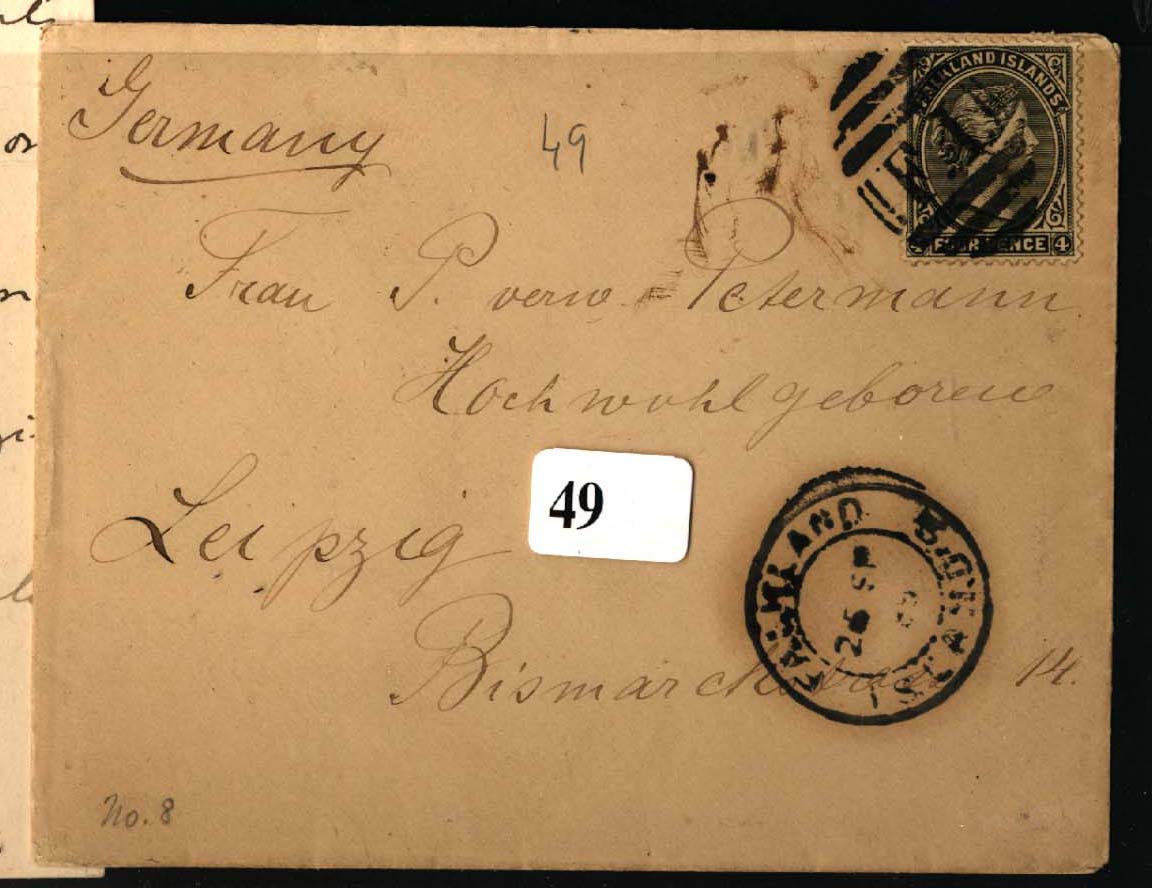 Germany
49
FALKLAND ISLANDS
FOUR PENCE 4
Frau P. verw. = Petermann
Hochwohlgeboren
Leipzig
49
FALKLAND ISLANDS
25 SP
Bismarckstrasse 14.
No. 8